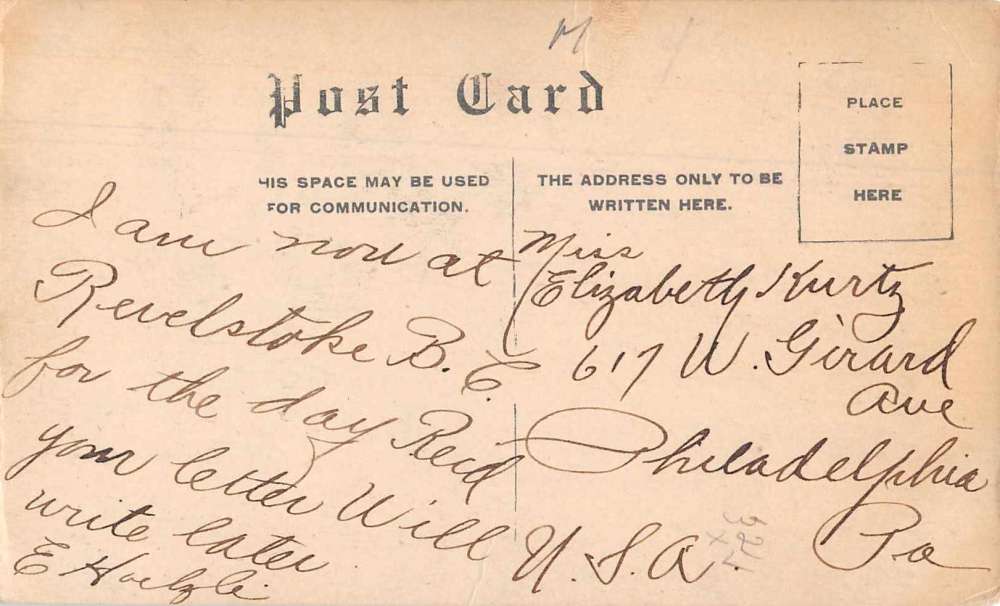 Post Card
HIS SPACE MAY BE USED
FOR COMMUNICATION.
THE ADDRESS ONLY TO BE
WRITTEN HERE.
PLACE
STAMP
HERE
I am now at
Revelstoke B.C.
for the day Recd
your letter Will
write later
E
Miss
Elizabeth Kurtz
617 W. Girard
Ave
Philadelphia
Pa
U.S.A.